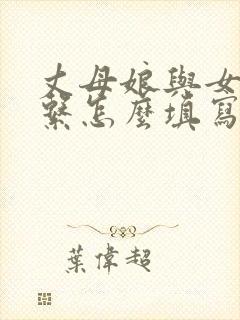 丈母娘與女
繫怎麼填寫
葉偉超